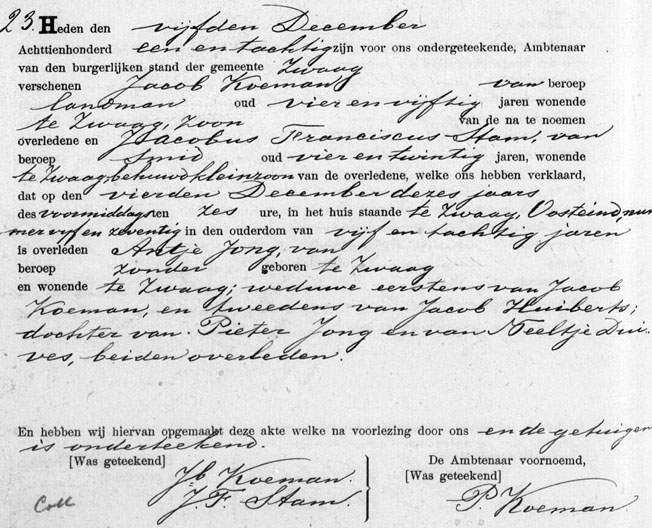 23. Heden den vijfden December
Achttienhonderd een en tachtig zijn voor ons ondergeteekende, Ambtenaar
van den burgerlijken stand der gemeente Zwaag
verschenen Jacob Koeman, van beroep
landman oud vier en vijftig jaren wonende
te Zwaag, zoon van de na te noemen
overledene en Jacobus Franciscus Stam, van
beroep Smid oud vier en twintig jaren, wonende
te Zwaag, behuwd kleinzoon van de overledene, welke ons hebben verklaard,
dat op den vierden December dezes jaars
des voormiddags ten zes ure, in het huis staande te Zwaag, Oosteind num
mer vijf en zeventig in den ouderdom van vijf en tachtig jaren
is overleden Antje Jong, van
beroep zonder geboren te Zwaag
en wonende te Zwaag; weduwe eerstens van Jacob
Koeman, en tweedens van Jacob Huiberts;
dochter van Pieter Jong en van Neeltje Dui-
ves, beiden overleden.
En hebben wij hiervan opgemaakt deze akte welke na voorlezing door ons en de getuigen
is onderteekend.
[Was geteekend]
Jb Koeman.
J F Stam.
De Ambtenaar voornoemd,
[Was geteekend]
P. Koeman.
Coll